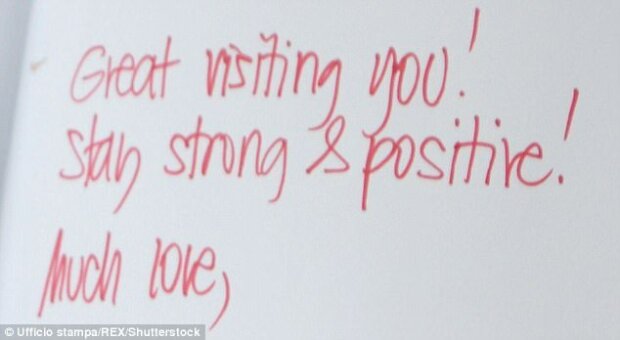 Great visiting you!
Stay strong & positive!
Much love,
© Ufficio stampa/REX/Shutterstock